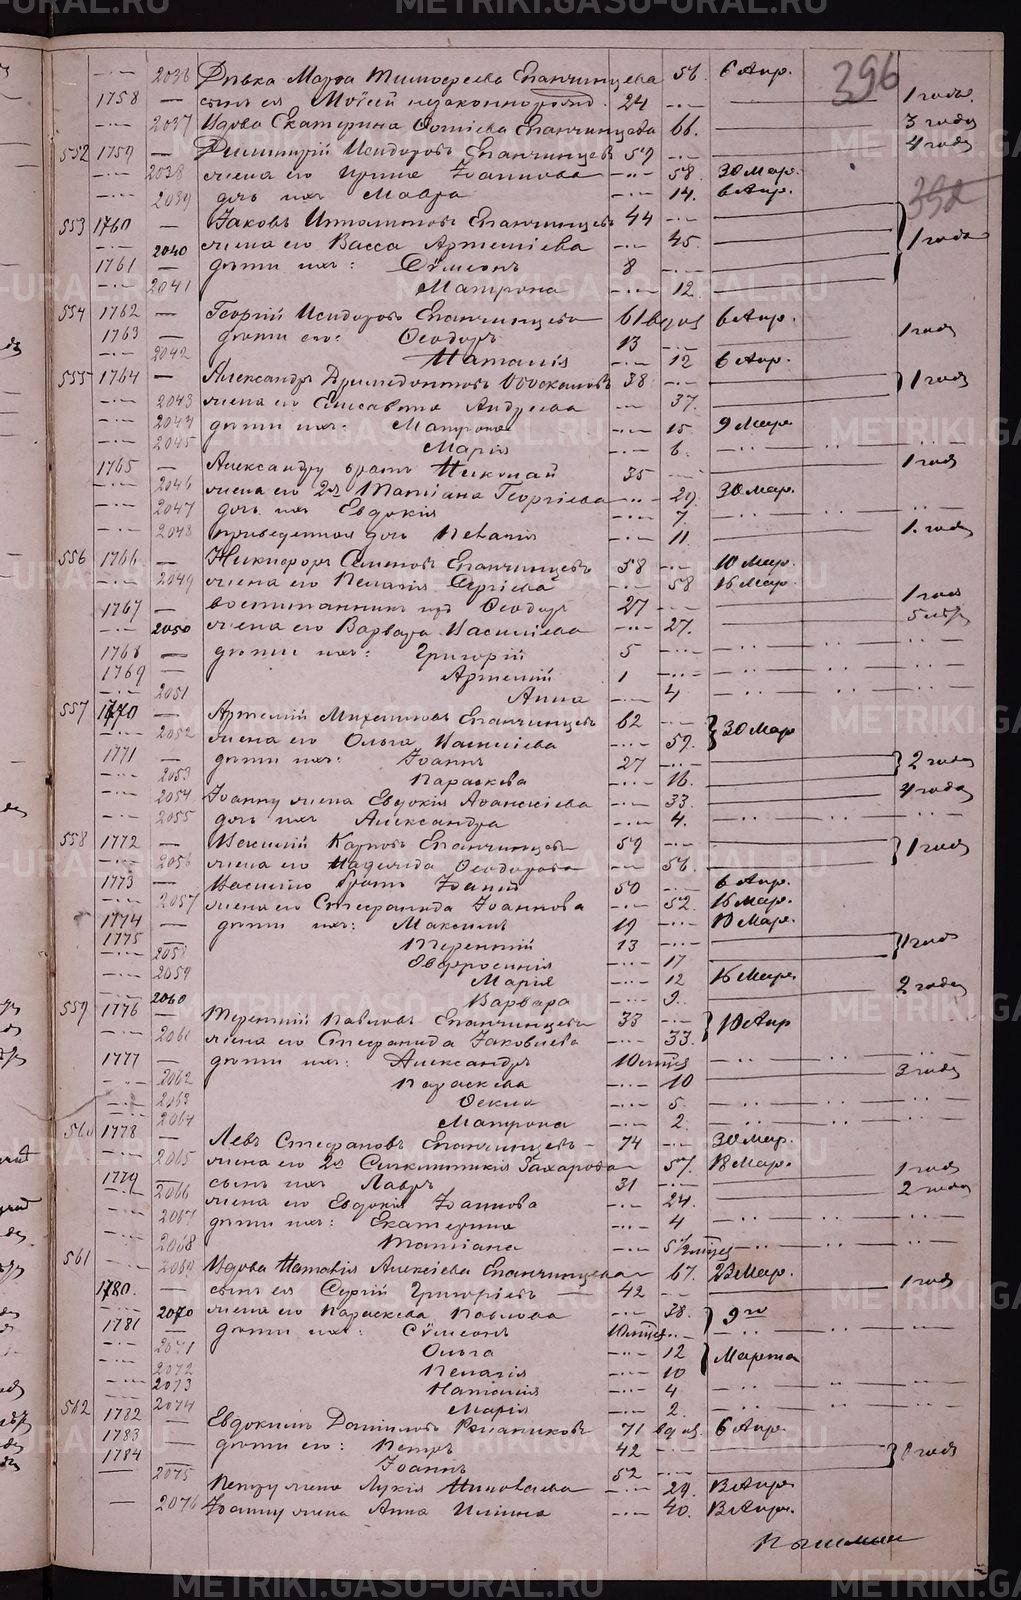 METRIKI.GASO-URAL.RU
396
392
2036 Дѣвка Марѳа Тимоѳеева Епанчинцева 56. 6 Апр.
1758 — сынъ ея Моѵсей незаконнорожд. 24 1 годъ.
2037 Вдова Екатерина Ѳотіева Епанчинцева 66. 3 года
552 1759 — Димитрій Исидоровъ Епанчинцевъ 59 4 года
2038 жена его Ирина Іоаннова 58. 30 Мар.
2039 дочь ихъ Мавра 14. 6 Апр.
553 1760 — Іаковъ Ипполитовъ Епанчинцевъ 44
2040 жена его Васса Артеміева 45. 1 годъ
1761 — дѣти ихъ: Сѵмеонъ 8
2041 Матрона 12.
554 1762 — Георгій Исидоровъ Епанчинцевъ 61 вдов 6 Апр.
1763 — дѣти его: Ѳеодоръ 13 1 годъ
2042 Наталія 12 6 Апр.
555 1764 — Александръ 38 1 годъ
2043 жена его Елисавета Андреева 37.
2044 дѣти ихъ: Матрона 15. 9 Мар.
2045 Марія 6.
1765 — Александру братъ Николай 35 1 годъ
2046 жена его 2я Татіана Георгіева 29. 30 Мар.
2047 дочь ихъ Евдокія 7.
2048 приведенная дочь Пелагія 11. 1 годъ
556 1766 — Никифоръ Семеновъ Епанчинцевъ 58 10 Мар.
2049 жена его Пелагія Сергіева 58 16 Мар.
1767 — воспитанникъ Ѳеодоръ 27 1 годъ
2050 жена его Варвара Васильева 27.
1768 — дѣти ихъ: Григорій 5
1769 — Артемій 1
2051 Анна 4
557 1770 — Артемій Михайловъ Епанчинцевъ 62
2052 жена его Ольга Васильева 59. 30 Мар
1771 — дѣти ихъ: Іоаннъ 27 2 года
2053 Параскева 16.
2054 Іоанну жена Евдокія Аѳанасіева 33. 4 года
2055 дочь ихъ Александра 4.
558 1772 — Василій Карповъ Епанчинцевъ 59 1 годъ
2056 жена его Надежда Ѳеодорова 56.
1773 — Василію братъ 50 6 Апр.
2057 жена его Стефанида Іоаннова 52. 16 Мар.
1774 — дѣти ихъ: Максимъ 19 10 Мар.
1775 Терентій 13 1 годъ
2058 Евфросинія 17
2059 Марія 12 16 Мар.
2060 Варвара 9. 2 года
559 1776 — Терентій Павловъ Епанчинцевъ 33
2061 жена его Стефанида Іаковлева 33. 10 Апр
1777 — дѣти ихъ: Александръ 10 мѣся
2062 Параскева 10 3 года
2063 Ѳекла 5.
2064 Матрона 2.
560 1778 — Левъ Стефановъ Епанчинцевъ 74 30 Мар.
2065 жена его 2я Синклитикія Захарова 57. 18 Мар. 1 годъ
1779 — сынъ ихъ Лавръ 31 2 года
2066 жена его Евдокія Іоаннова 24.
2067 дѣти ихъ: Екатерина 4
2068 Татіана 5 1/2 мѣсяц
561 2069 Вдова Наталія Алексіева Епанчинцева 67. 23 Мар.
1780. — сынъ ея Сергій Григорьевъ 42 1 годъ
2070 жена его Параскева Павлова 38. 9го
1781 — дѣти ихъ: Сѵмеонъ 10 мѣсяц
2071 Ольга 12 Марта
2072 Пелагія 10
2073 Наталія 4
2074 Марія 2.
562 1782 — Евдокимъ Даниловъ 71 вдов. 6 Апр.
1783 — дѣти его: Петръ 42
1784 — Іоаннъ 52 1 годъ
2075 Петру жена Лукія 29.
2076 Іоанну жена Анна Ильина 40.